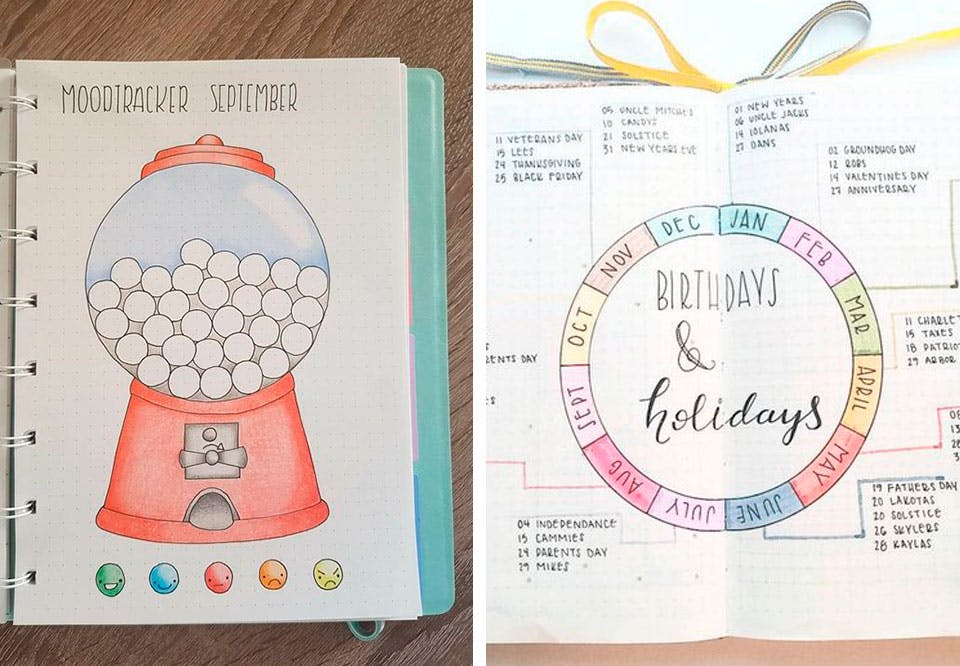 MOODTRACKER SEPTEMBER
05 UNCLE MITCHES
10 CANDYS
21 SOLSTICE
31 NEW YEARS EVE
01 NEW YEARS
06 UNCLE JACKS
14 IOLANAS
27 DANS
11 VETERANS DAY
15 LEES
24 THANKSGIVING
25 BLACK FRIDAY
02 GROUNDHOG DAY
12 ROBS
14 VALENTINES DAY
27 ANNIVERSARY
DEC
JAN
NOV
FEB
OCT
MAR
SEPT
APRIL
AUG
MAY
JULY
JUNE
BIRTHDAYS
&
holidays
11 CHARLE
15 TAXES
18 PATRIO
29 ARBOR
RENTS DAY
19 FATHERS DAY
20 LAKOTAS
20 SOLSTICE
26 SKYLERS
28 KAYLAS
04 INDEPENDANCE
15 CAMMIES
24 PARENTS DAY
29 MIKES